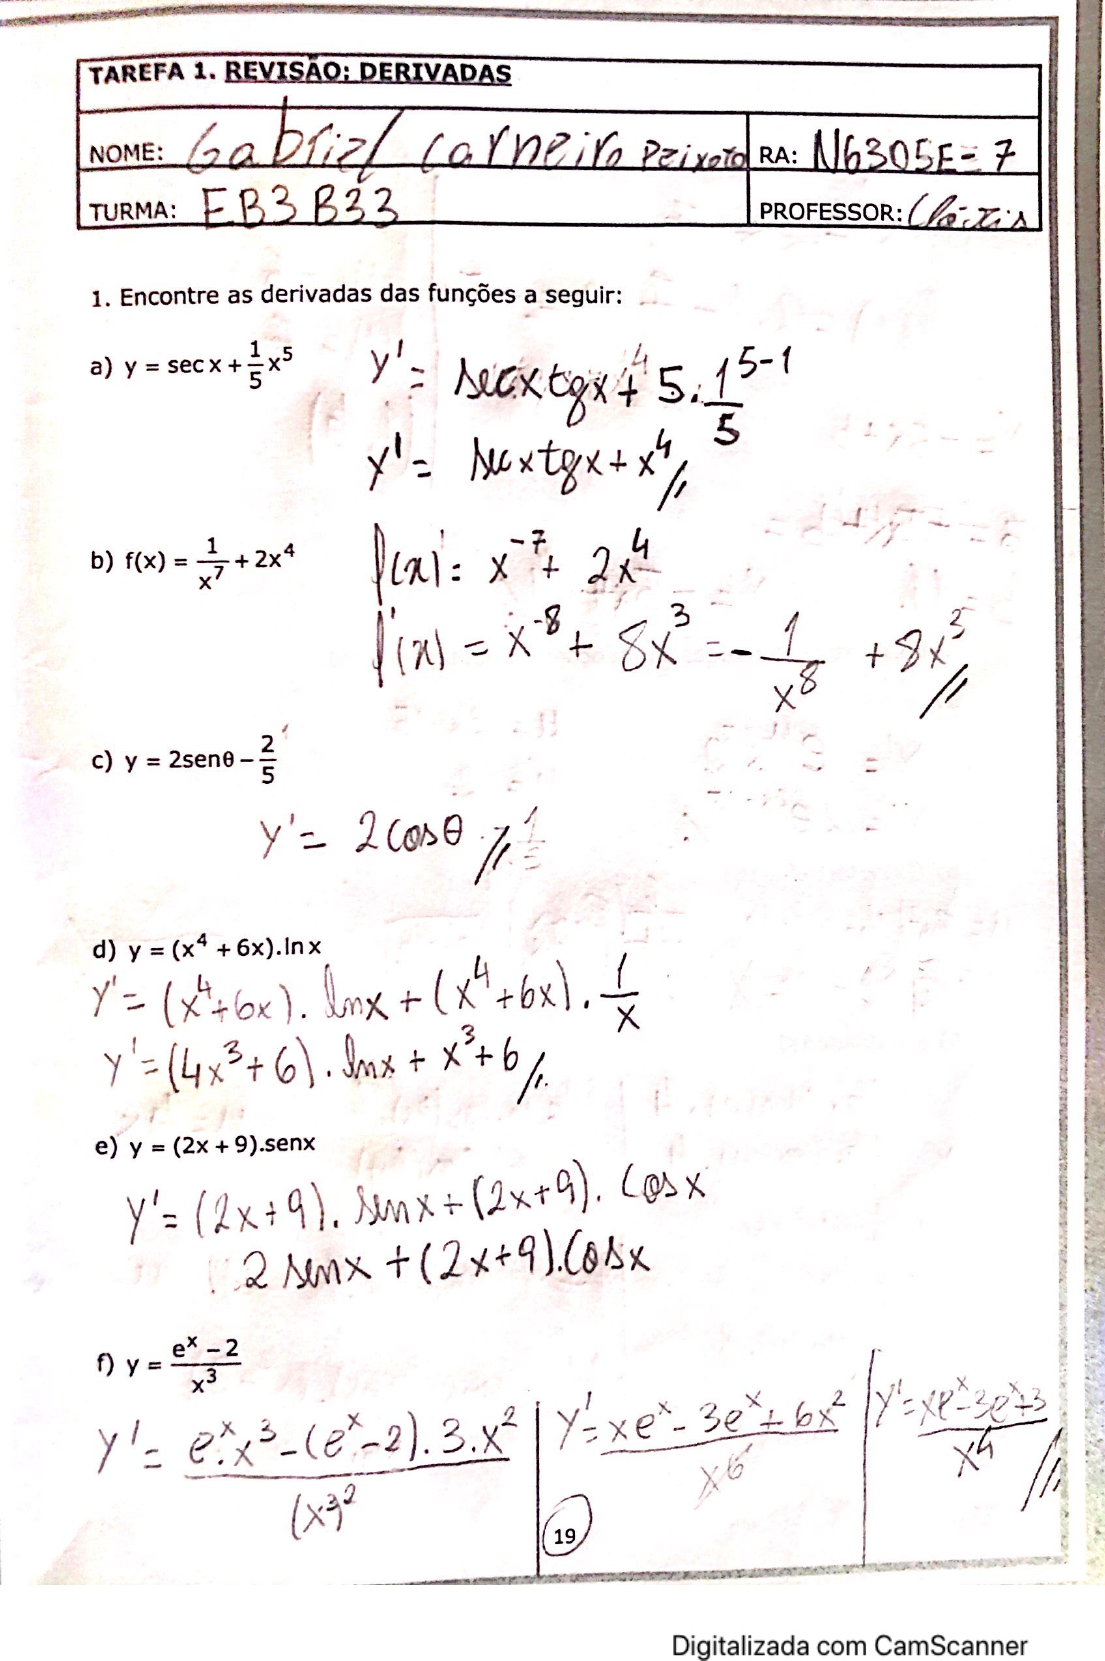 TAREFA 1. REVISÃO: DERIVADAS
NOME: Gabriel Carneiro Peixoto RA: N6305E-7
TURMA: EB3B33 PROFESSOR:
1. Encontre as derivadas das funções a seguir:
a) y = sec x + 1/5 x^5
y' = secx tgx + 5 . 1/5^(5-1)
y' = secxtgx + x^4 //
b) f(x) = 1/x^7 + 2x^4
f(x)' = x^-7 + 2x^4
f'(x) = x^-8 + 8x^3 = - 1/x^8 + 8x^3 //
c) y = 2senθ − 2/5
y' = 2cosθ //
d) y = (x^4 + 6x).ln x
y' = (x^4+6x). lnx + (x^4+6x). 1/x
y' = (4x^3+6). lnx + x^3+6 //
e) y = (2x + 9).senx
y' = (2x+9). senx + (2x+9). cosx
2 senx + (2x+9).cosx
f) y = (e^x − 2)/x^3
y' = (e^x.x^3 - (e^x-2).3.x^2)/(x^3)^2
y' = (xe^x - 3e^x + 6x^2)/x^6
y' = (xe^x-3e^x+3)/x^4 //
19
Digitalizada com CamScanner